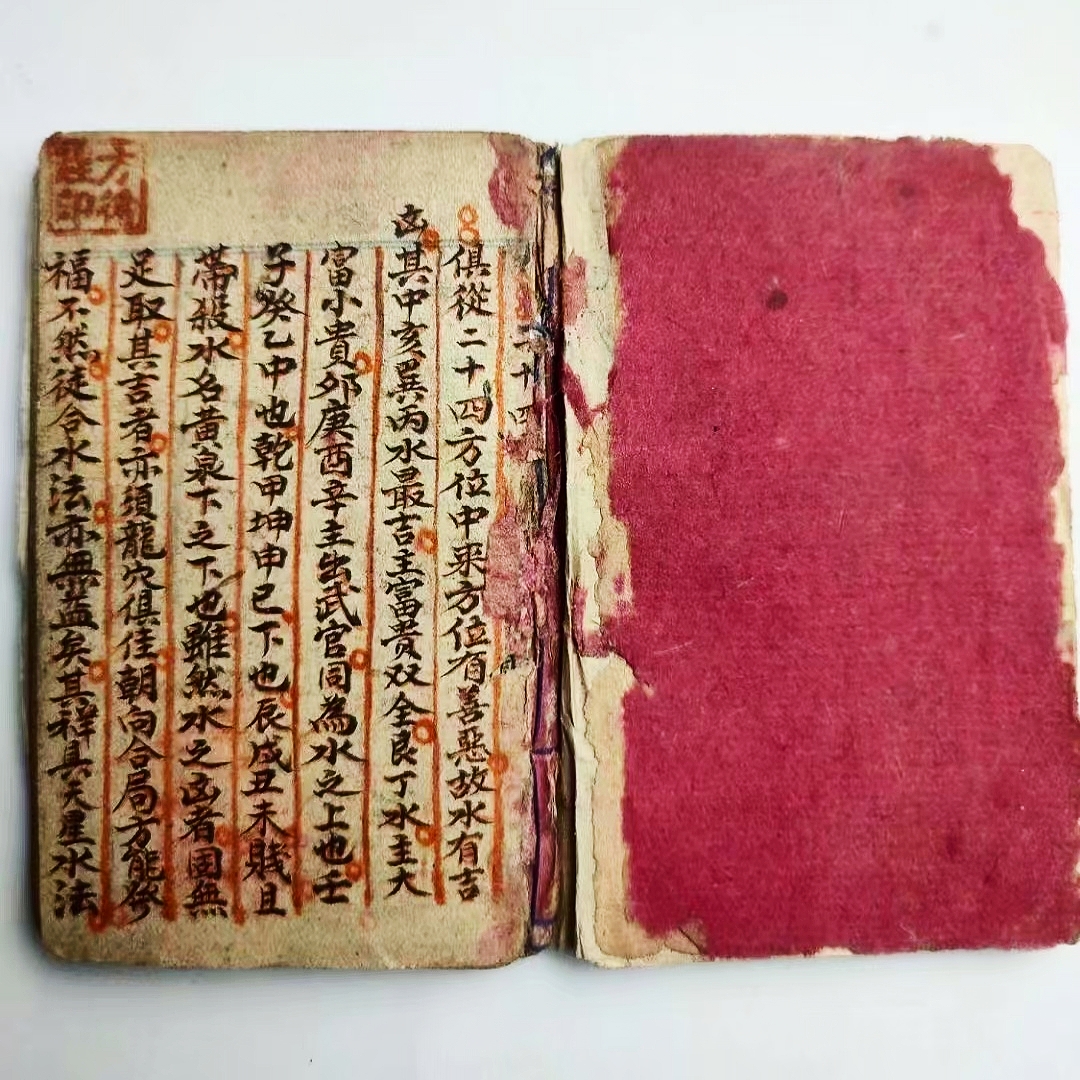 二十四
俱從二十四方位中来方位有善惡故水有吉
凶其中亥巽丙水最吉主富貴双全艮丁水主大
富小貴卯庚酉辛主出武官同為水之上也壬
子癸乙中也乾甲坤申巳下也辰戌丑未賤且
帶殺水名黄泉下之下也雖然水之凶者固無
足取其吉者亦須龍穴俱佳朝向合局方能發
福不然徒合水法亦無益矣其祥具天星水法